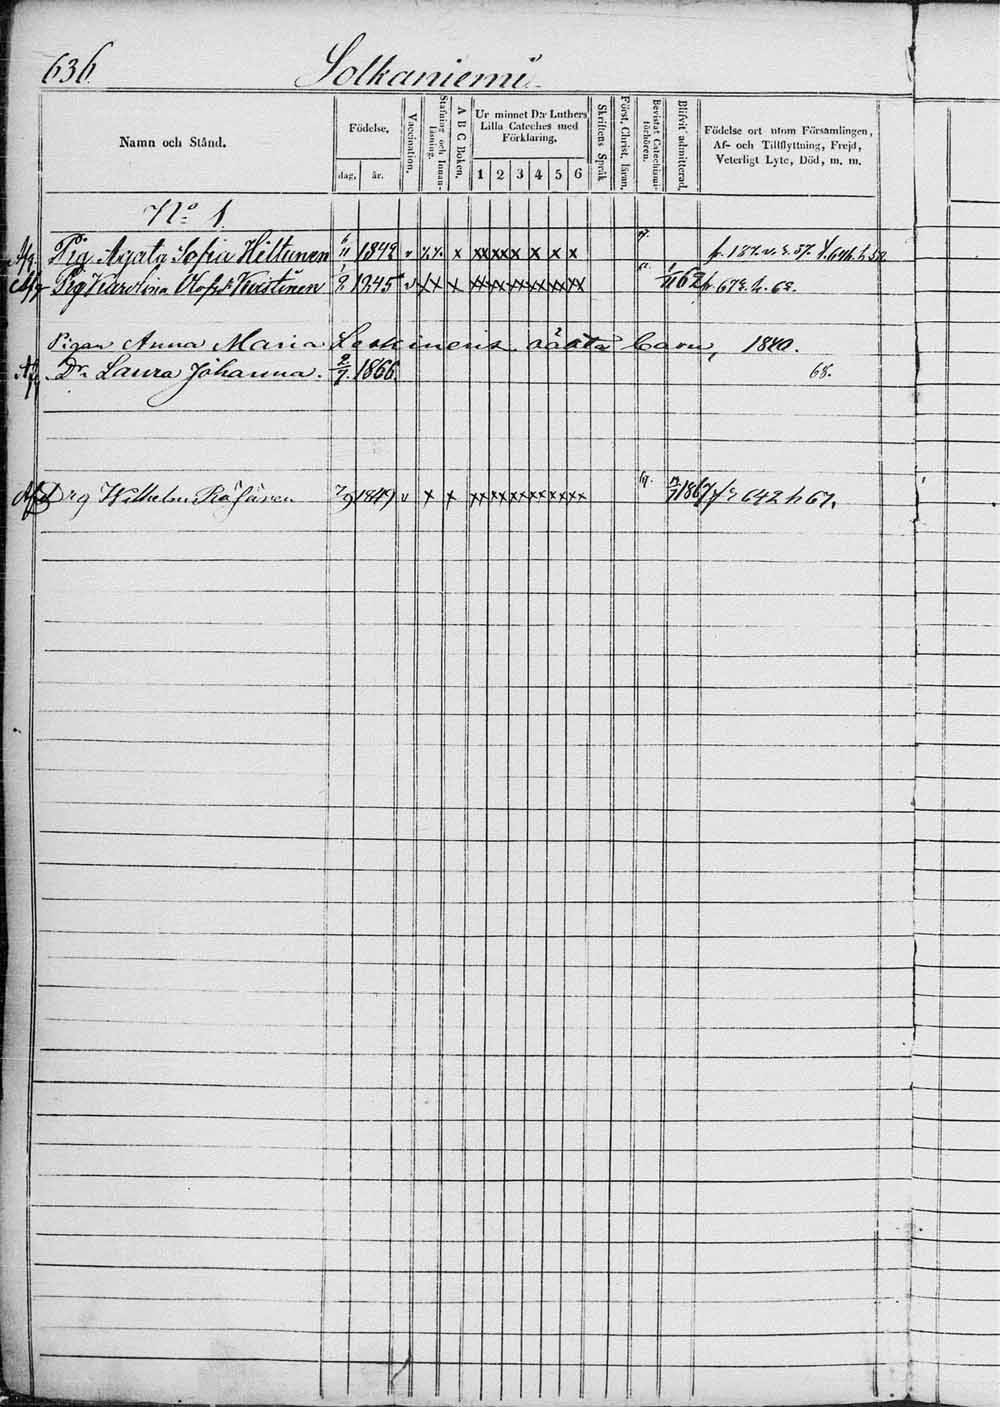 636.
Solkaniemi
Namn och Stånd.
Födelse,
dag. år.
Vaccination.
Stafning och Innanläsning.
A B C Boken.
Ur minnet D:r Luthers Lilla Cateches med Förklaring.
1 2 3 4 5 6
Skriftens Språk
Först. Christ. läran.
Bevistat Catechismiförhören.
Blifvit admitterad.
Födelse ort utom Församlingen,
Af- och Tillflyttning, Frejd,
Veterligt Lyte, Död, m. m.
N:o 1
Afg Pig. Agata Sofia Hiltunen 6/11 1842 v x x x xx xx x x x x f. 187.
Afg Pig Karolina Olofsd. 1/2 1845 v x x x xx xx xx xx xx xx a. 1/11 62 f. 672. h. 62.
Pigan Anna Maria Leskinens oäkta barn, 1840.
Af Dr. Laura Johanna. 2/7. 1866. 68.
Afg Drg Wilhelm Räisänen 7/9 1849 v x x xx xx xx xx xx xx 1867 642 h 67.